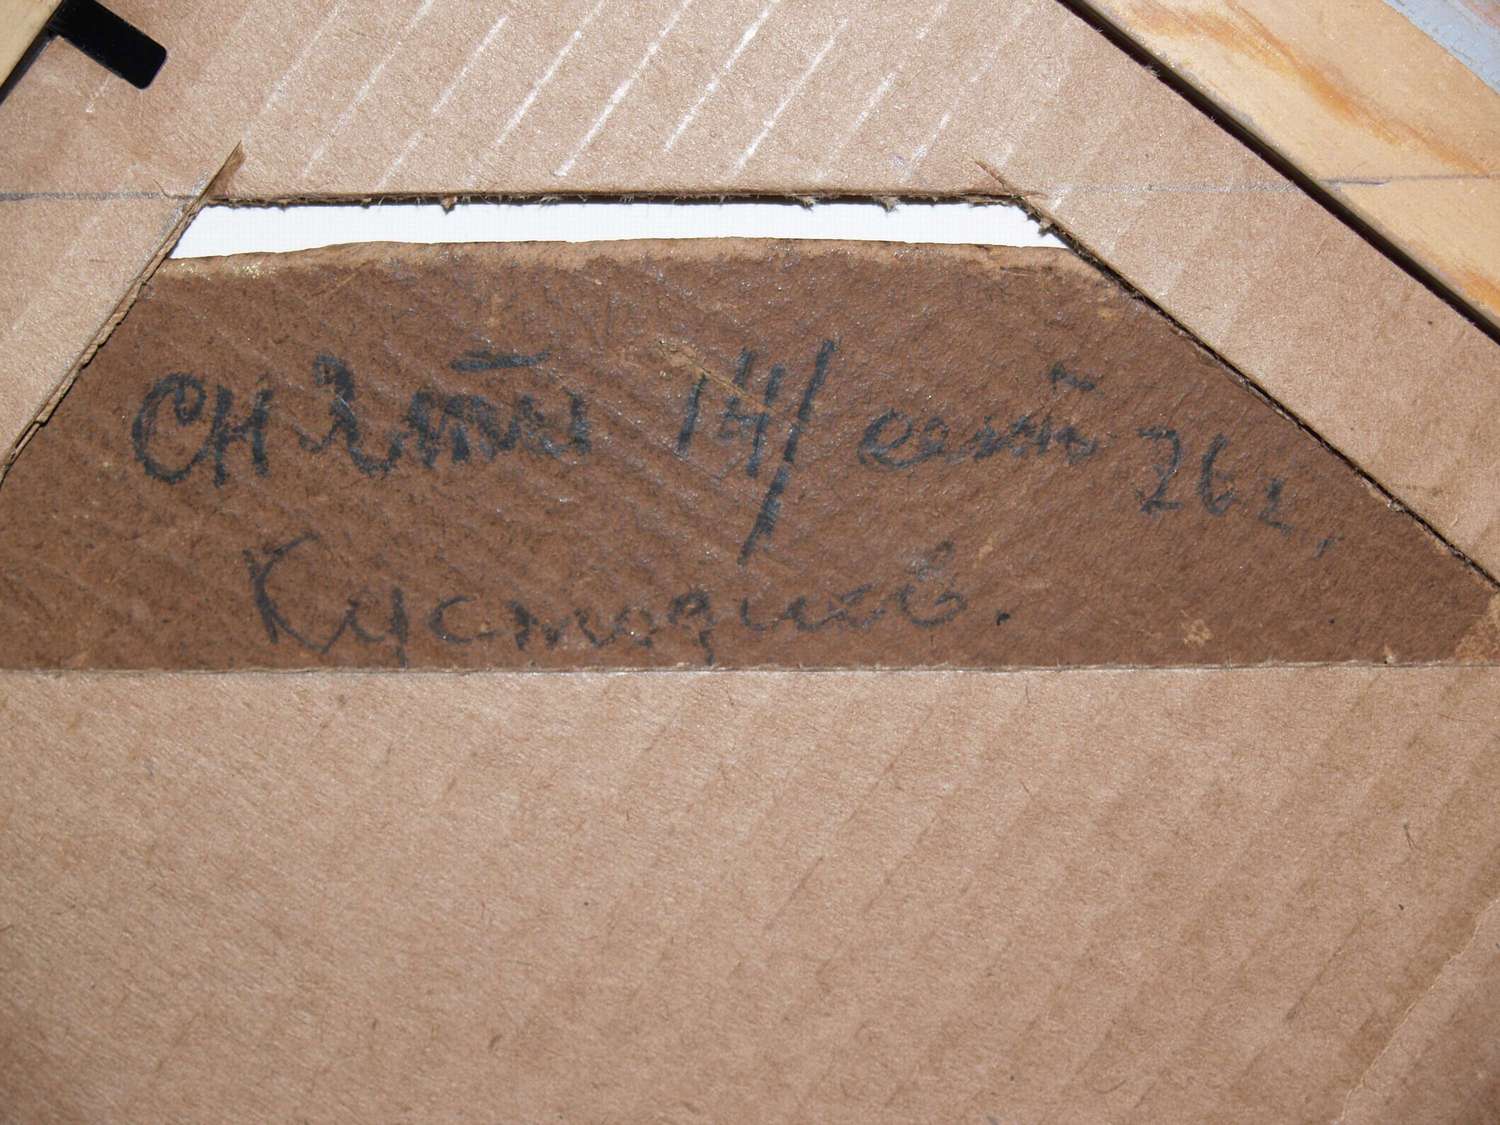 СН 14/ сент 26 г.
Кустодиев.